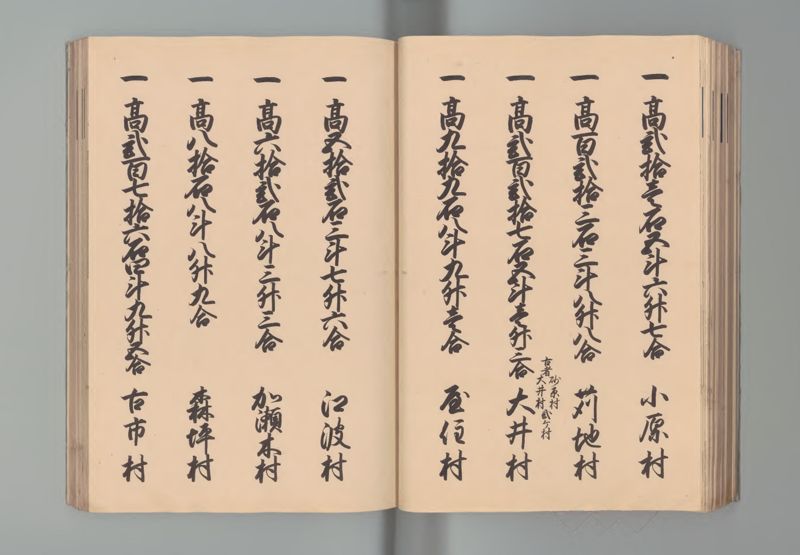 一 高弐拾壱石五斗六升七合 小原村
一 高百弐拾三石三斗八升八合 苅地村
一 高弐百弐拾七石五斗壱升三合 大井村
古者 砂原村 大井村 弐ケ村
一 高九拾九石八斗九升壱合 屋住村
一 高五拾弐石三斗七升六合 江波村
一 高六拾弐石八斗三升三合 加瀬木村
一 高八拾石八斗八升九合 森坪村
一 高弐百七拾六石四斗九升五合 古市村